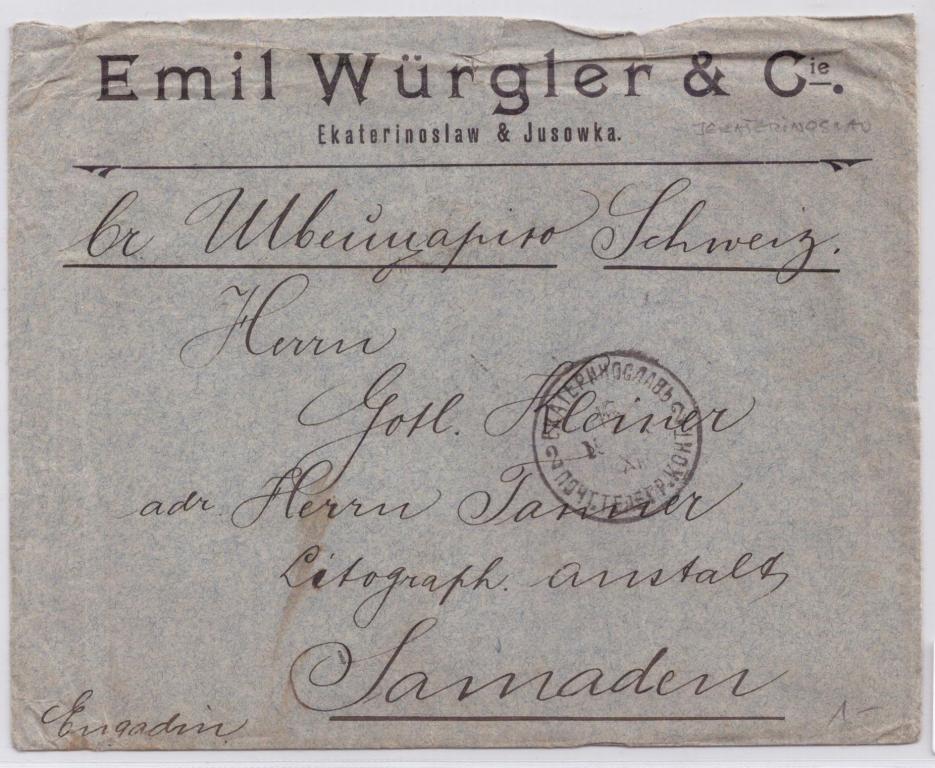 Emil Würgler & Cie.
Ekaterinoslaw & Jusowka.
JEKATERINOSLAV
въ Швейцарію Schweiz.
Herrn
Gotl. Kleiner
adr. Herrn Tanner
Litograph. anstalt
Samaden
Engadin
ЕКАТЕРИНОСЛАВЪ
ПОЧТ. ТЕЛЕГР. КОНТ.
1-